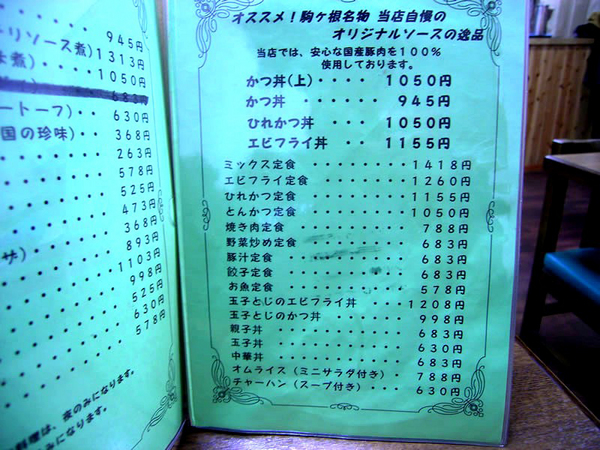 945円
リソース煮)1313円
煮)・・・・1050円
683円
ートーフ)・・630円
国の珍味)・・368円
263円
578円
525円
473円
368円
ザ)・・・893円
1103円
998円
525円
630円
578円
料理は、夜のみになります。
みになります。
オススメ!駒ヶ根名物 当店自慢の
オリジナルソースの逸品
当店では、安心な国産豚肉を100%
使用しております。
かつ丼(上)・・・・1050円
かつ丼 ・・・・・・945円
ひれかつ丼 ・・・1050円
エビフライ丼 ・・1155円
ミックス定食 ・・・・・・・・1418円
エビフライ定食 ・・・・・・・1260円
ひれかつ定食 ・・・・・・・・1155円
とんかつ定食 ・・・・・・・・1050円
焼き肉定食 ・・・・・・・・・788円
野菜炒め定食 ・・・・・・・・683円
豚汁定食 ・・・・・・・・・・683円
餃子定食 ・・・・・・・・・・683円
お魚定食 ・・・・・・・・・・578円
玉子とじのエビフライ丼 ・・・・1208円
玉子とじのかつ丼 ・・・・・・998円
親子丼 ・・・・・・・・・・・683円
玉子丼 ・・・・・・・・・・・630円
中華丼 ・・・・・・・・・・・683円
オムライス(ミニサラダ付き)・・788円
チャーハン(スープ付き)・・・630円